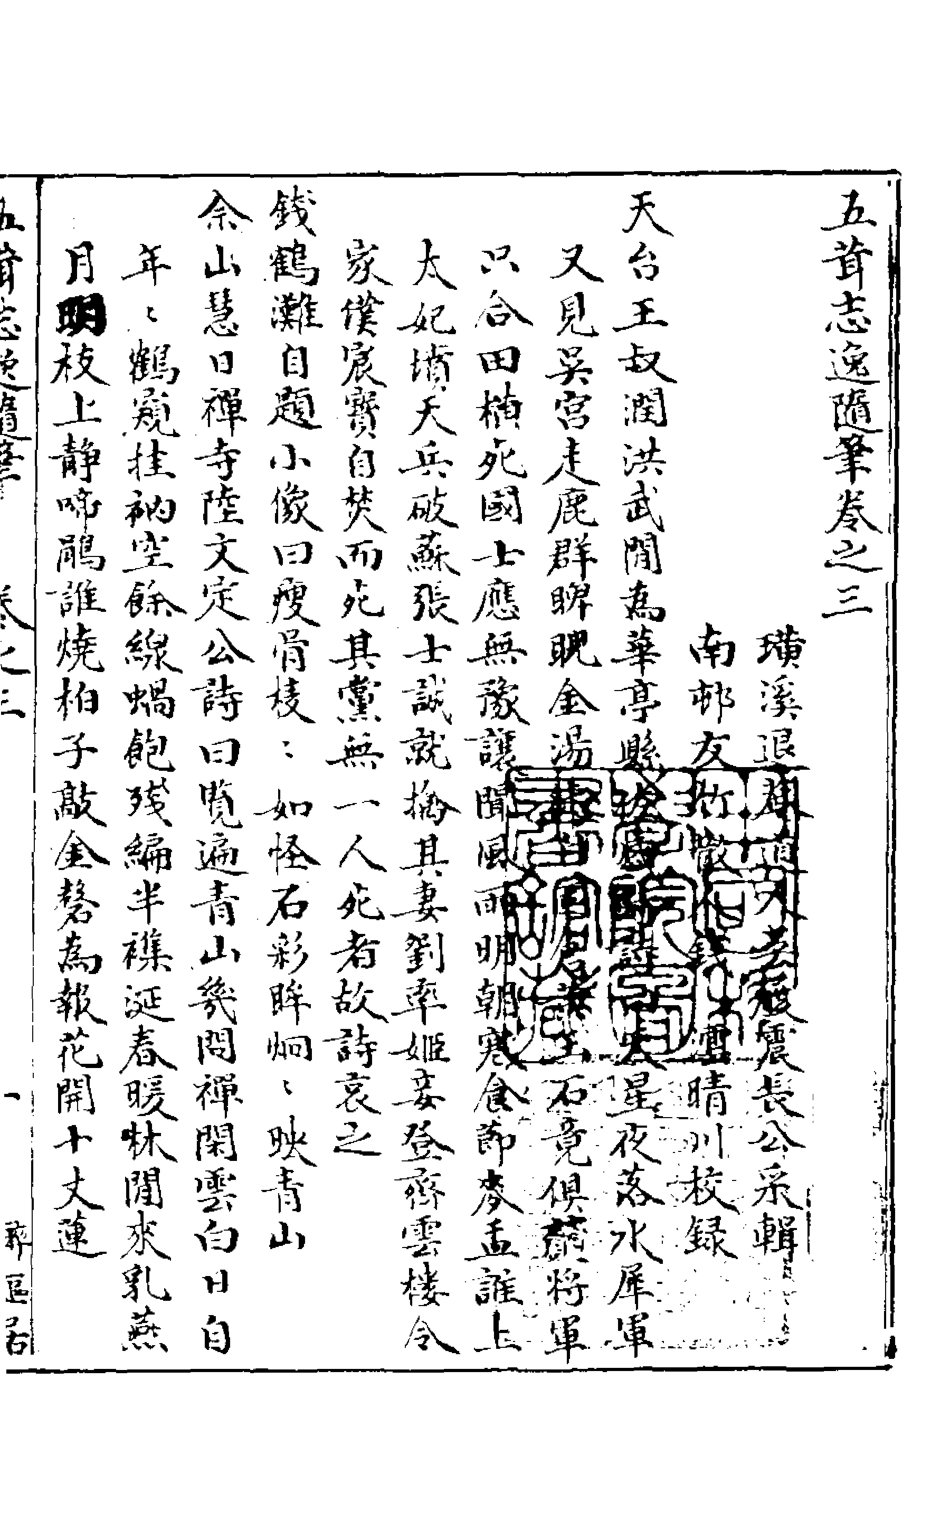 五茸志逸隨筆卷之三
璜溪退耕道人吴履震長公采輯
南邨友竹懶人錢雲晴川校録
天台王叔潤洪武間為華亭縣詩大星夜落水犀軍
又見吳宮走鹿群睥睨金湯玉石竟俱薠将軍
只合田横死國士應無豫讓聞風雨明朝寒食節麥盂誰上
太妃墳天兵破蘇張士誠就擒其妻劉率姬妾登齊雲楼令
家僕宸寶自焚而死其黨無一人死者故詩哀之
錢鶴灘自題小像曰瘦骨棱〻如怪石彩眸炯〻映青山
佘山慧日禪寺陸文定公詩曰覽遍青山幾問禪閑雲白日自
年〻鶴窺挂衲空餘線蝸飽残編半襍涎春暖林間來乳燕
月明枝上静啼鵑誰燒柏子敲金磬為報花開十丈蓮
五茸志逸隨筆 卷之三 一